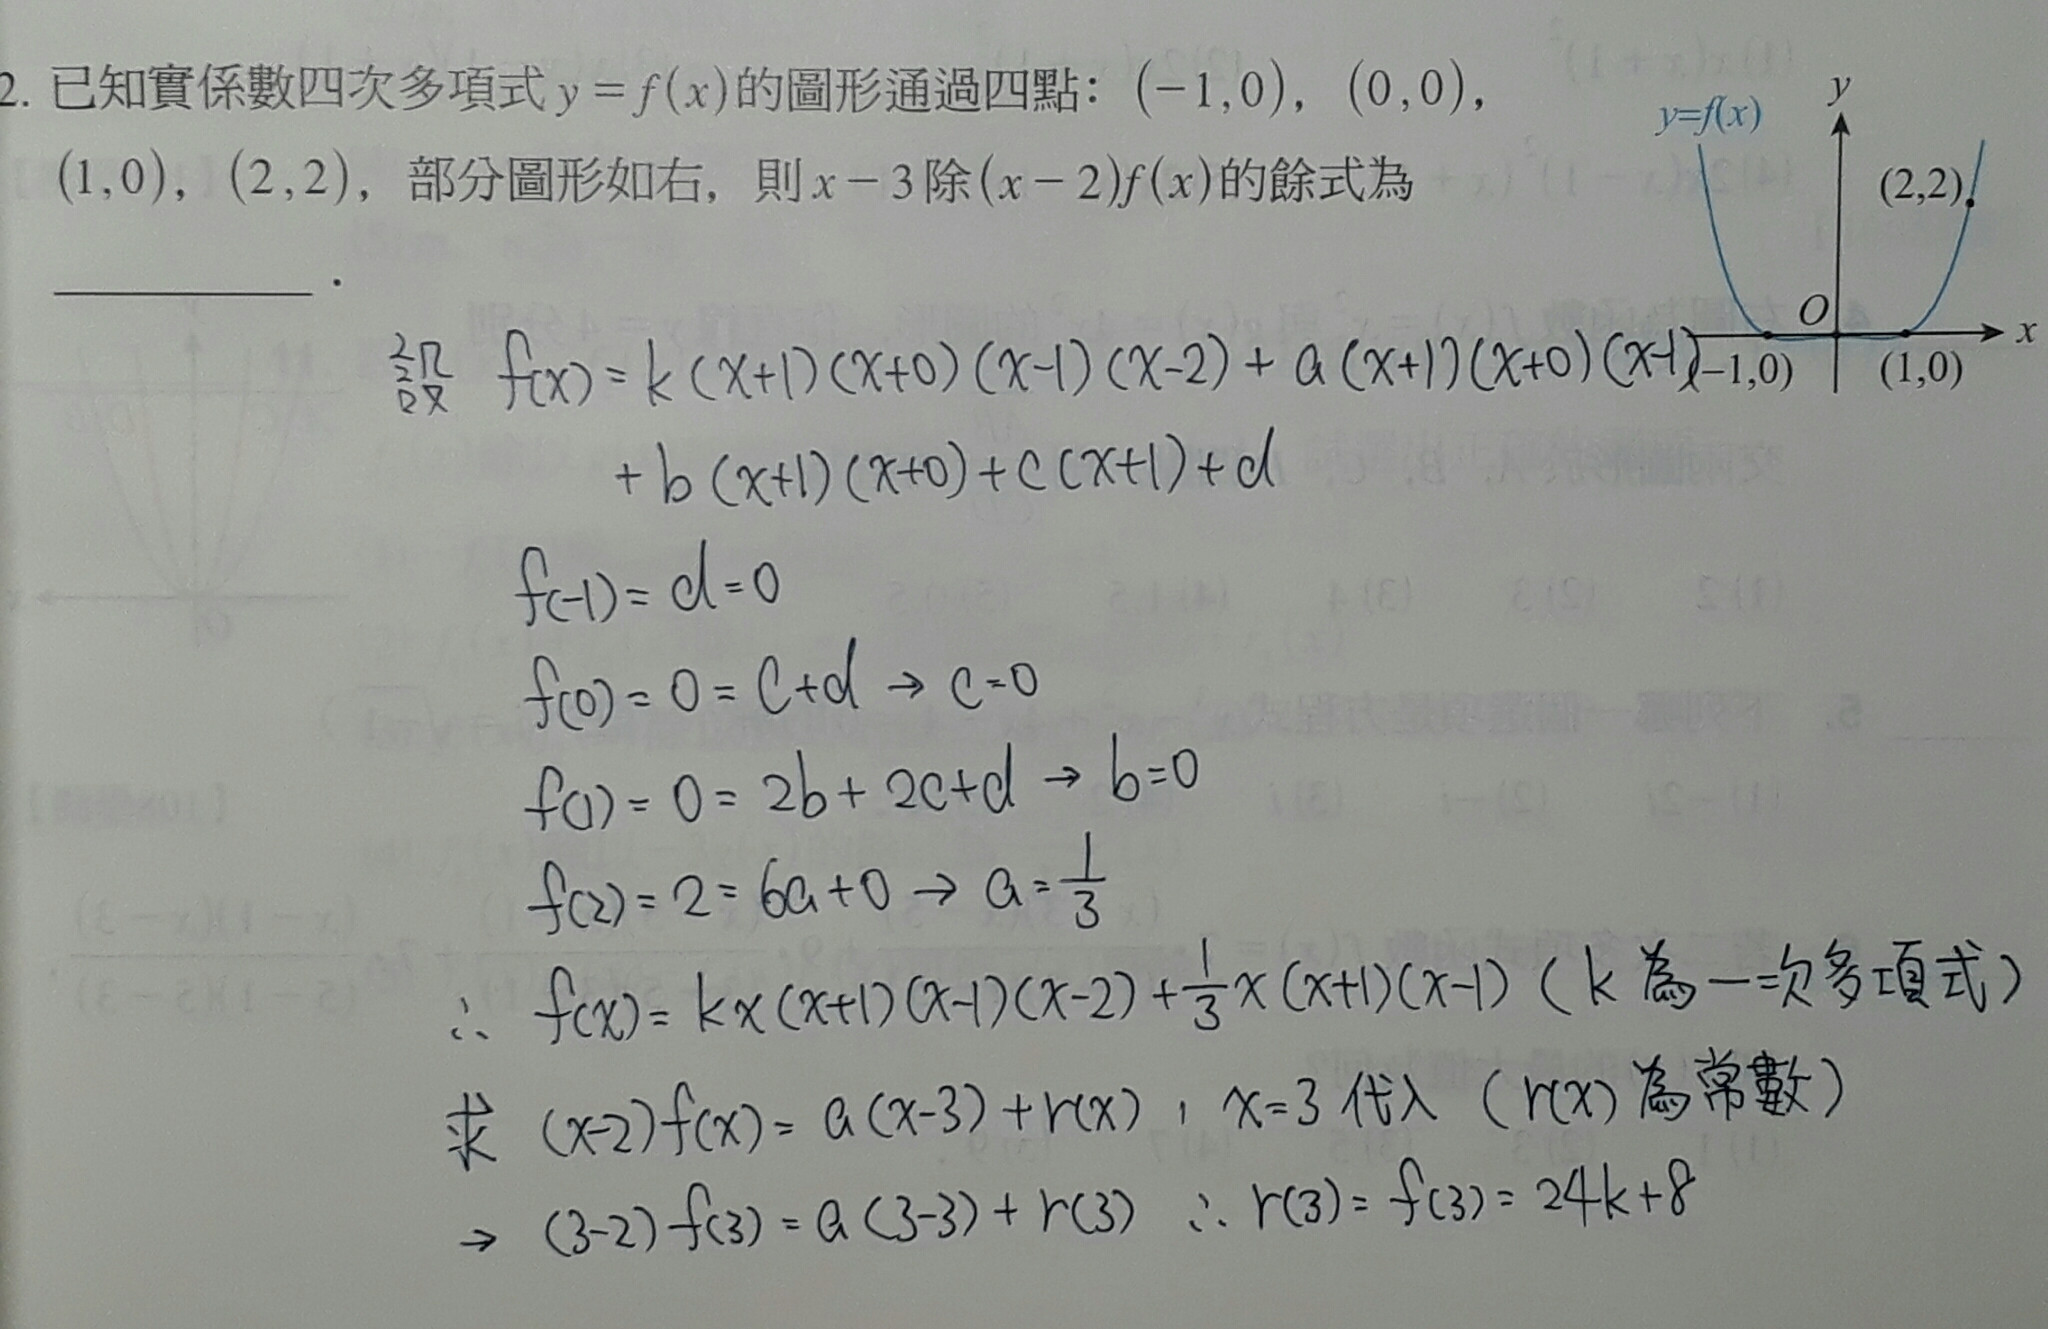 2. 已知實係數四次多項式 y=f(x)的圖形通過四點:(-1,0),(0,0),
(1,0),(2,2),部分圖形如右,則 x-3 除(x-2)f(x)的餘式為
________.
y
y=f(x)
(2,2)
O
x
(-1,0)
(1,0)
設 f(x)=k(x+1)(x+0)(x-1)(x-2)+a(x+1)(x+0)(x-1)
+b(x+1)(x+0)+c(x+1)+d
f(-1)=d=0
f(0)=0=c+d→c=0
f(1)=0=2b+2c+d→b=0
f(2)=2=6a+0→a=1/3
∴ f(x)=kx(x+1)(x-1)(x-2)+1/3x(x+1)(x-1)(k 為一次多項式)
求 (x-2)f(x)=a(x-3)+r(x),x=3 代入(r(x)為常數)
→ (3-2)f(3)=a(3-3)+r(3) ∴r(3)=f(3)=24k+8